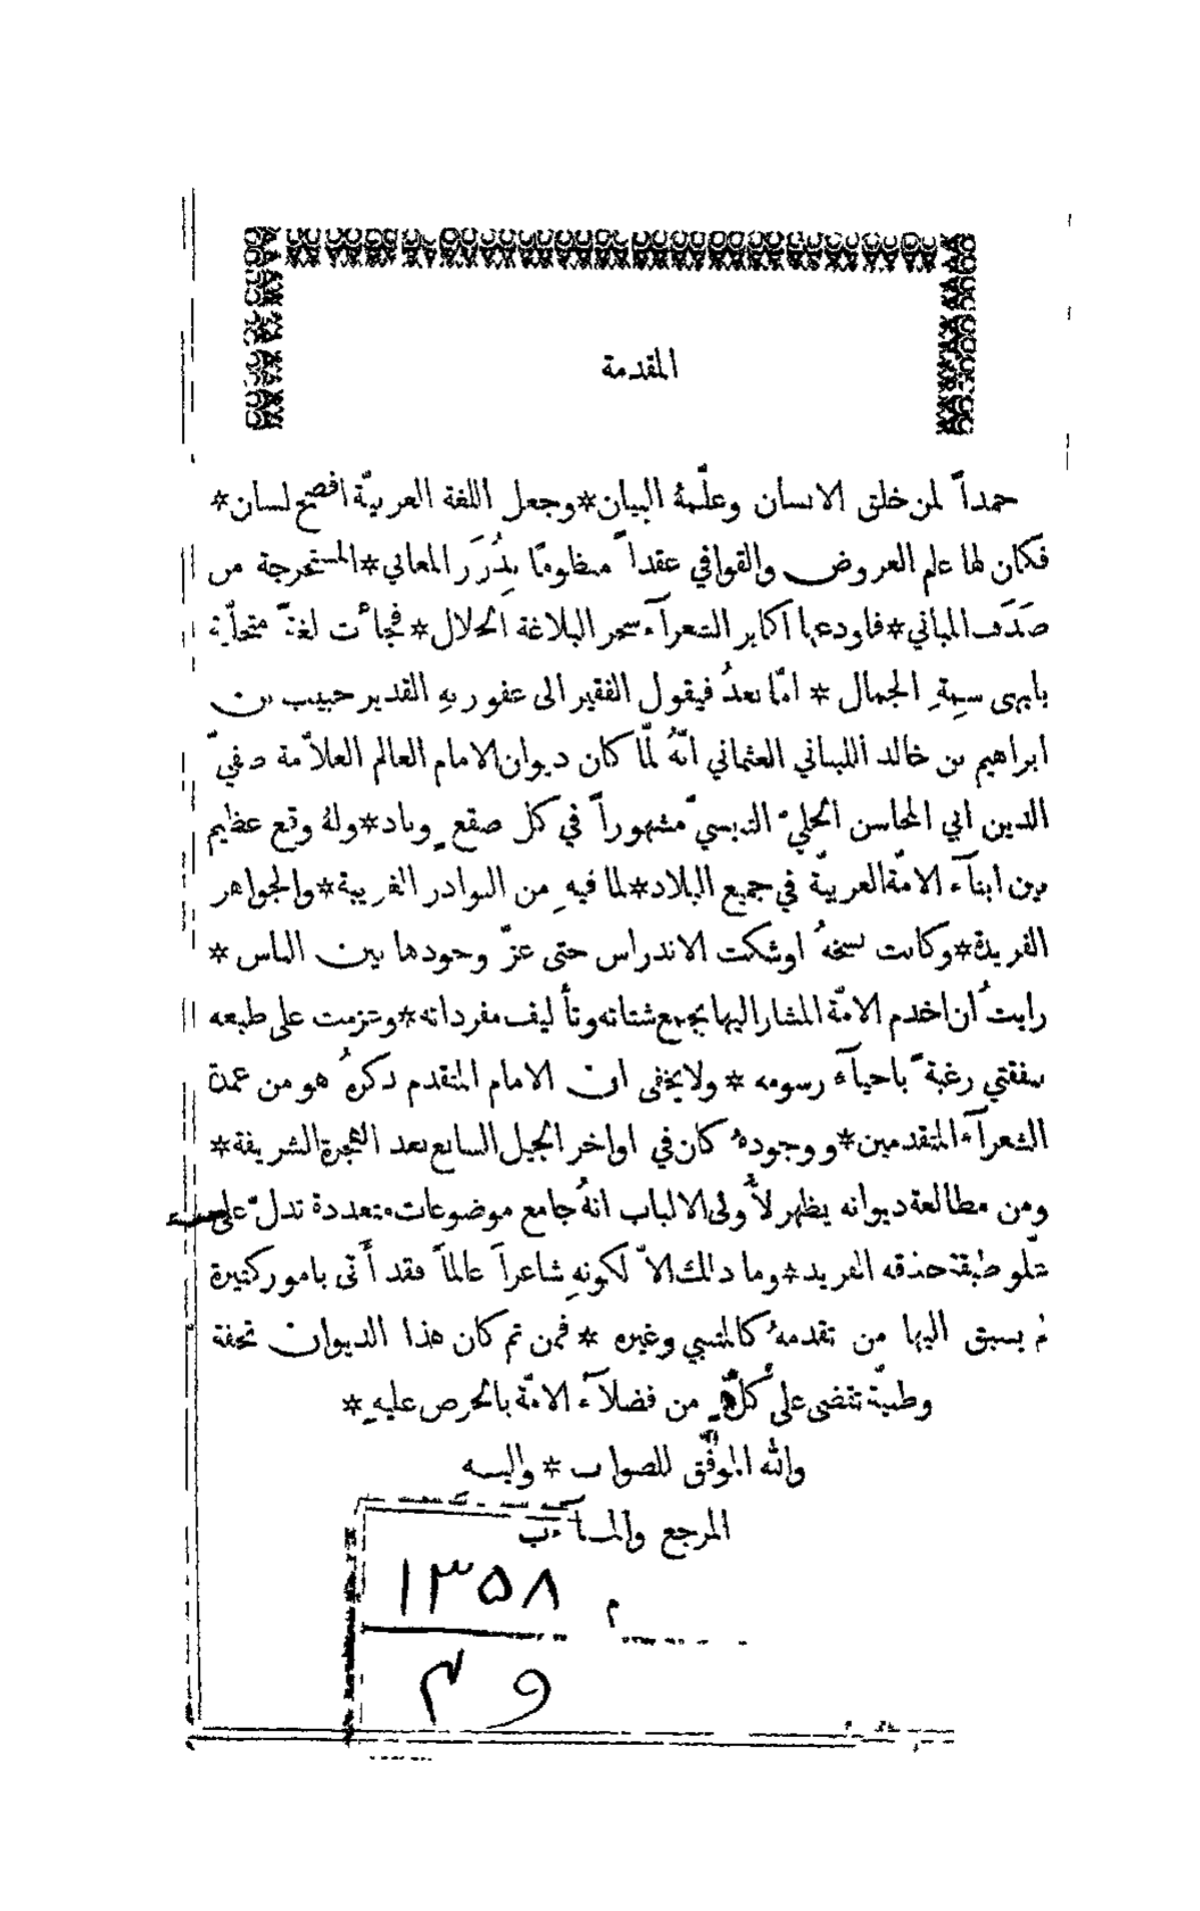 المقدمة
حمداً لمن خلق الانسان وعلّمهُ البيان * وجعل اللغة العربيّة افصح لسان *
فكان لها علم العروض والقوافي عقداً منظومًا بِدُرَرِ المعاني * المستخرجة من
صَدَف المباني * فاودعها اكابر الشعرآء سحر البلاغة الحلال * فجاءَت لغةً متحلّية
بابهى سِمةِ الجمال * امّا بعدُ فيقول الفقير الى عفو ربهِ القدير حبيب بن
ابراهيم بن خالد اللبناني العثماني انّهُ لمّا كان ديوان الامام العالم العلاّمة صفيّ
الدين ابي المحاسن الحلّي السنبسيّ مشهوراً في كل صقعٍ وناد * ولهُ وقع عظيم
بين ابنآء الامّة العربيّة في جميع البلاد * لما فيهِ من النوادر الغريبة * والجواهر
الفريدة * وكانت نسخهُ اوشكت الاندراس حتى عزّ وجودها بين الناس *
رايتُ أن اخدم الامّة المشار اليها بجمع شتاته وتأليف مفرداته * وعزمت على طبعه
بنفقتي رغبةً باحيآء رسومه * ولا يخفى ان الامام المتقدم ذكرهُ هو من عمدة
الشعرآء المتقدمين * ووجودهُ كان في اواخر الجيل السابع بعد الهجرة الشريفة *
ومن مطالعة ديوانه يظهر لأُولى الالباب انهُ جامع موضوعات متعددة تدلّ على
علو طبقة حذقه الفريد * وما ذلك الاّ لكونهِ شاعراً عالماً فقد أَتى بامور كثيرة
لم يسبق اليها من تقدمهُ كالمتنبي وغيره * فمن ثم كان هذا الديوان تحفة
وطبّة تقضى على كلٍّ من فضلآء الامّة بالحرص عليهِ *
والله الموفّق للصواب * واليه
المرجع والمـآب
١٣٥٨ م
و م